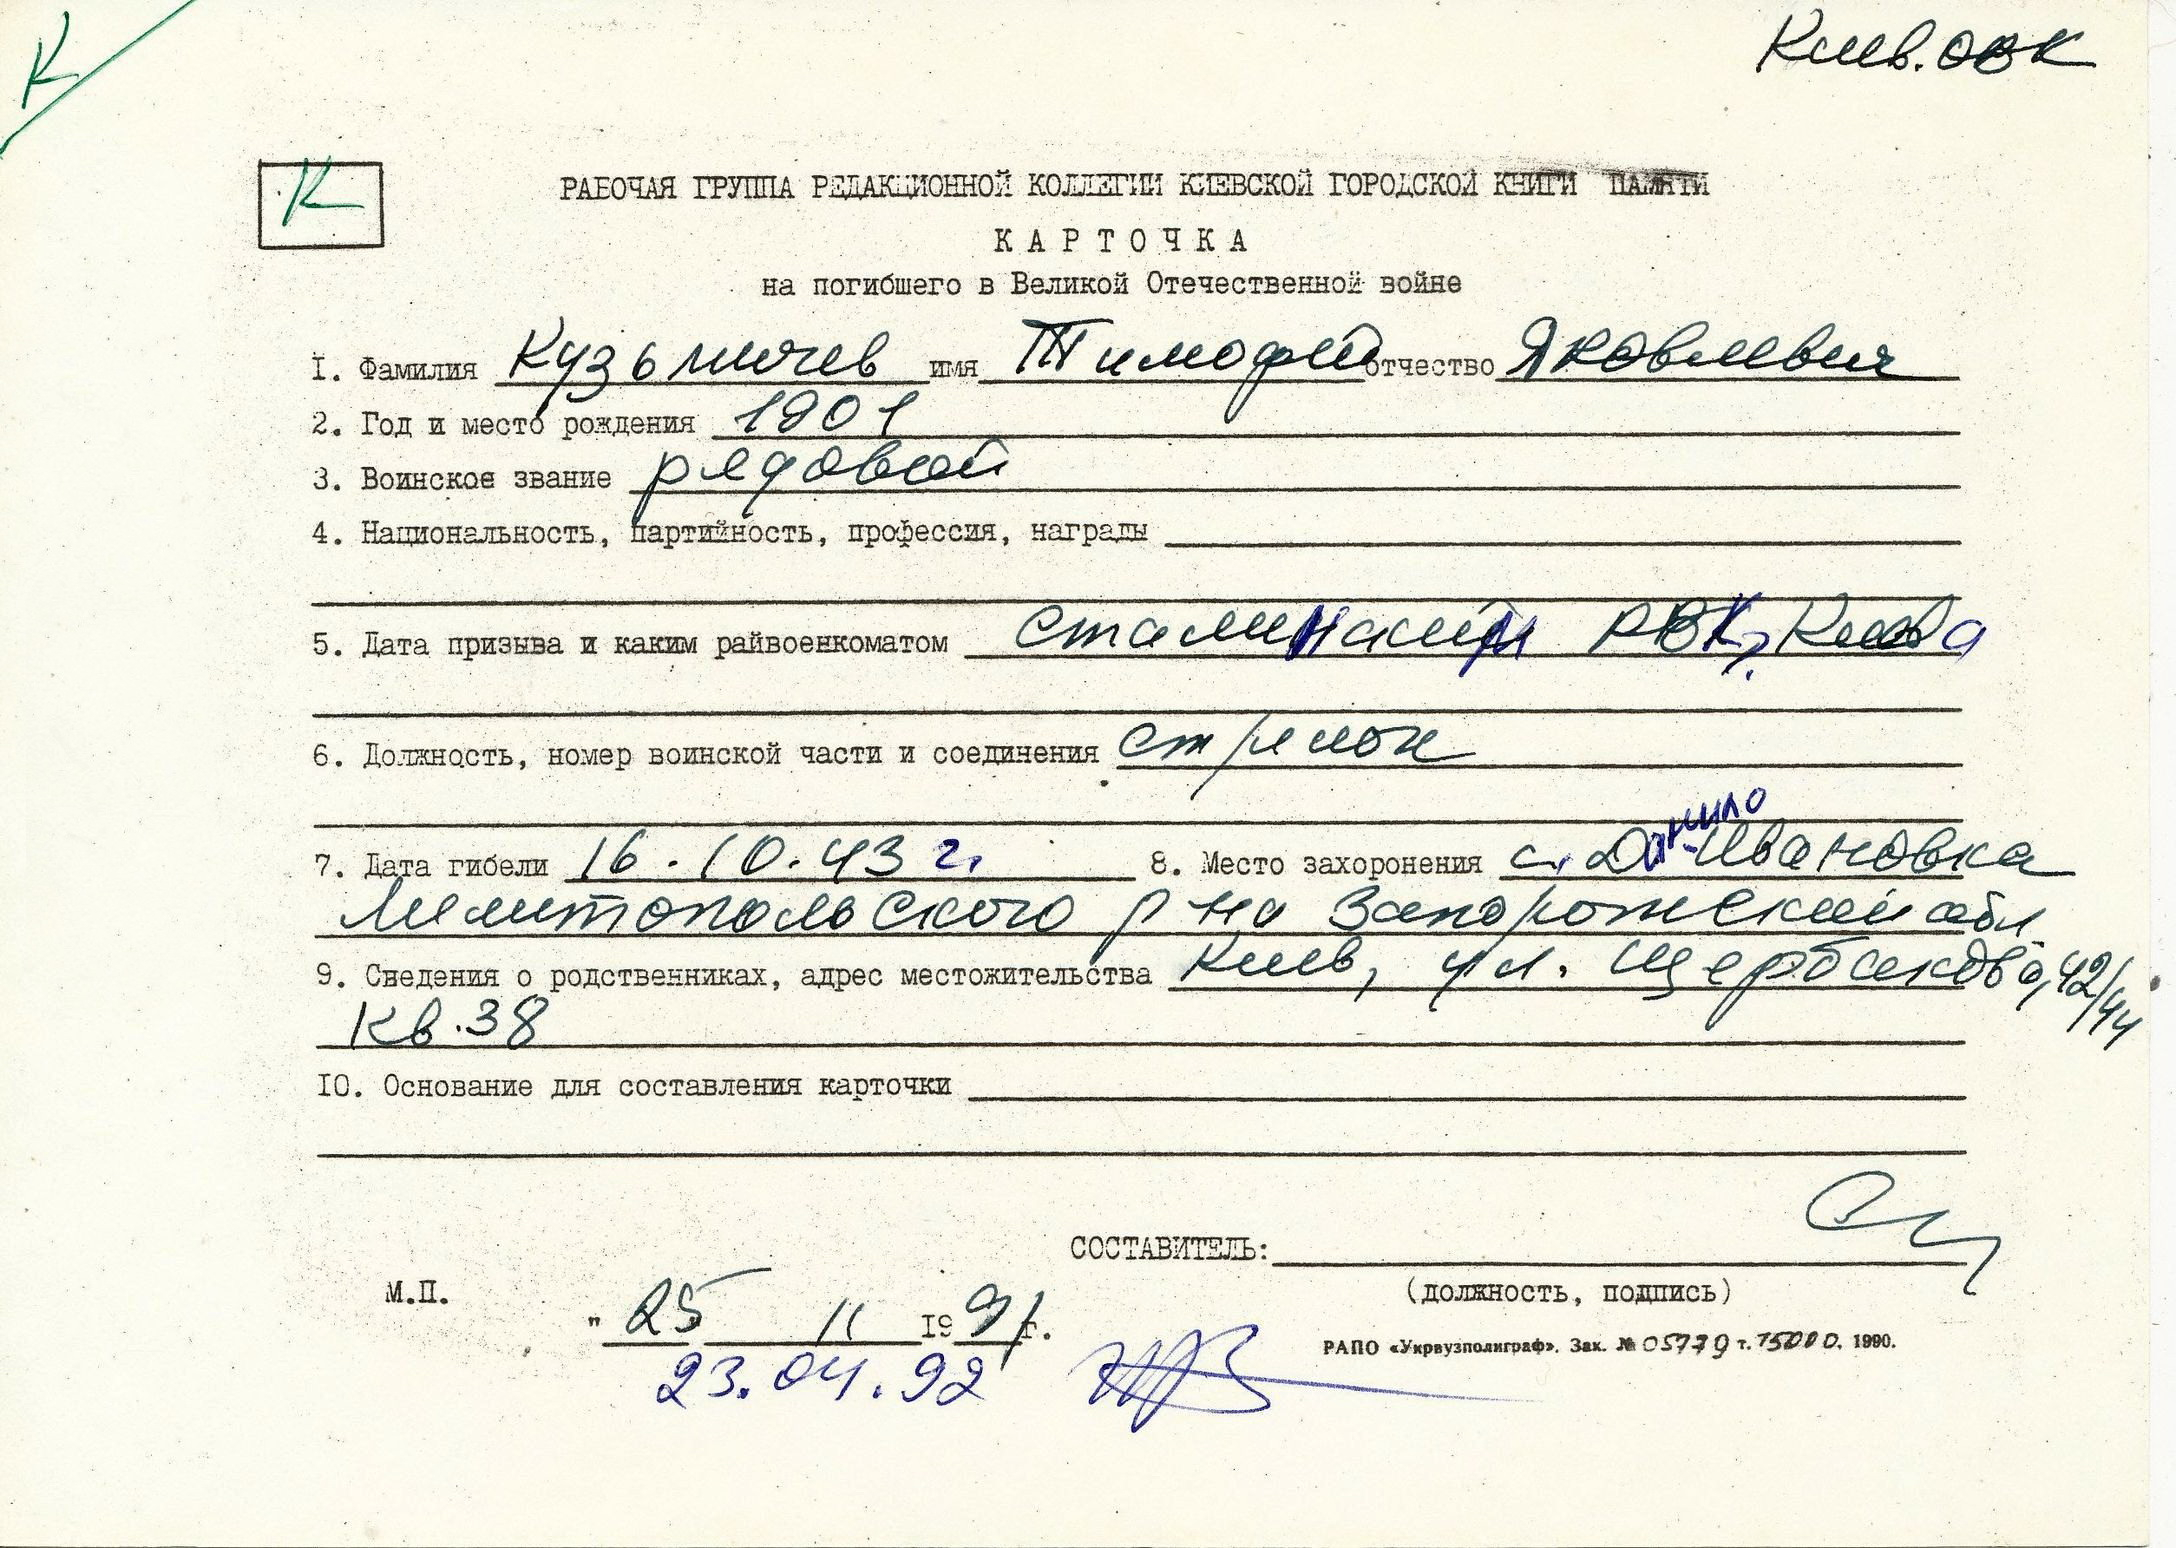 К
Киев. ОВК
К
РАБОЧАЯ ГРУППА РЕДАКЦИОННОЙ КОЛЛЕГИИ КИЕВСКОЙ ГОРОДСКОЙ КНИГИ ПАМЯТИ
КАРТОЧКА
на погибшего в Великой Отечественной войне
1. Фамилия Кузьмичев имя Тимофей отчество Яковлевич
2. Год и место рождения 1901
3. Воинское звание рядовой
4. Национальность, партийность, профессия, награды
5. Дата призыва и каким райвоенкоматом Сталинским РВК, Киева
6. Должность, номер воинской части и соединения стрелок
7. Дата гибели 16.10.43 г. 8. Место захоронения с. Данило-Ивановка
Мелитопольского р-на Запорожской обл.
9. Сведения о родственниках, адрес местожительства Киев, ул. Щербакова, 42/44
кв. 38
10. Основание для составления карточки
СОСТАВИТЕЛЬ:
М.П.
(должность, подпись)
" 25 11 1991г.
РАПО «Укрвузполиграф». Зак. № 05779 т. 15000. 1990.
23.04.92